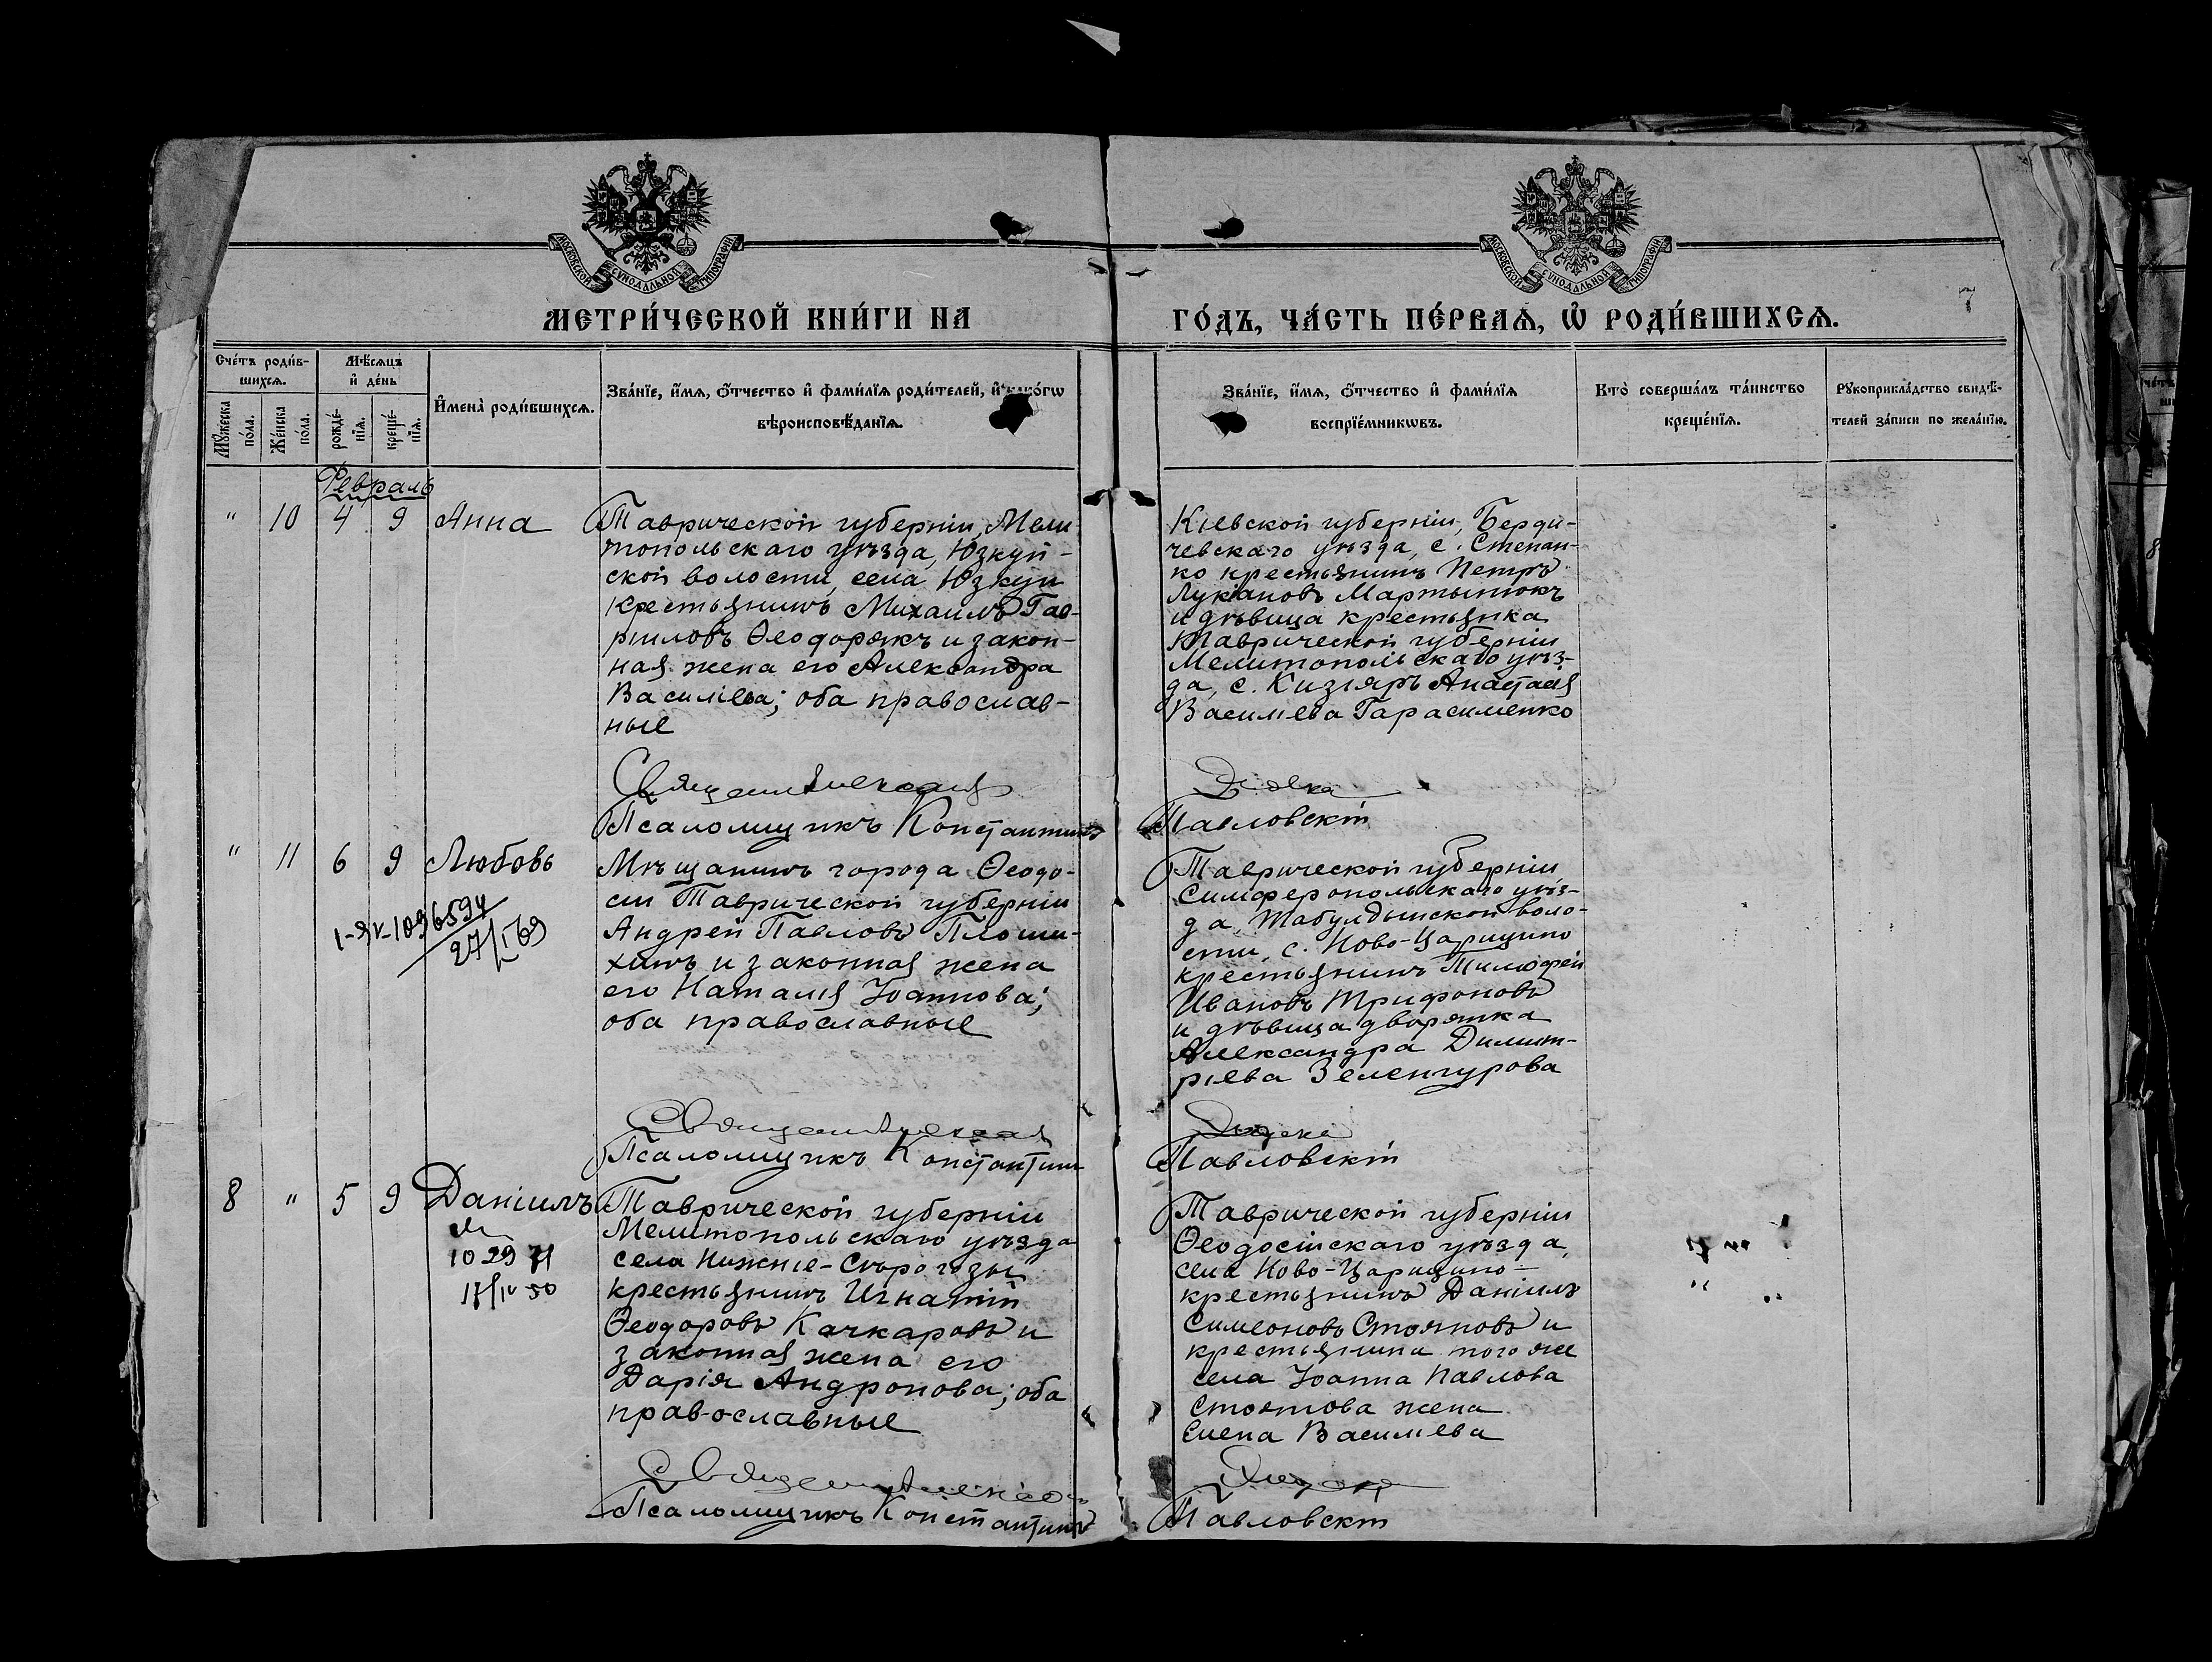 МОСКОВСКОЙ СѴНОДАЛЬНОЙ ТИПОГРАФІИ
МОСКОВСКОЙ СѴНОДАЛЬНОЙ ТИПОГРАФІИ
7
МЕТРИ́ЧЕСКОЙ КНИ́ГИ НА
ГО́ДЪ, ЧА́СТЬ ПЕ́РВАѦ, Ѡ҆ РОДИ́ВШИХСѦ.
Сче́тъ роди́в-
шихсѧ.
Мѹ́жеска
по́ла.
Же́нска
по́ла.
Мѣ́сѧцъ
и҆ де́нь
рожде́-
нїѧ.
креще́-
нїѧ.
И҆мена̀ роди́вшихсѧ.
Зва́нїе, и҆́мѧ, ѻ҆́тчество и҆ фами́лїѧ роди́телей, и҆ како́гѡ
вѣроисповѣ́данїѧ.
Зва́нїе, и҆́мѧ, ѻ҆́тчество и҆ фами́лїѧ
воспрїе́мникѡвъ.
Кто̀ соверша́лъ та́инство
креще́нїѧ.
Рѹкоприкла́дство свидѣ́-
телей за́писи по жела́нїю.
Февраль
" 10 4 9 Анна
Таврической губерніи, Мели
топольскаго уѣзда, Юзкуй-
ской волости, села Юзкуи
крестьянинъ Михаилъ Гав-
рииловъ Ѳеодорякъ и закон-
ная жена его Александра
Васильева; оба православ-
ные
Кіевской губерніи, Берди-
чевскаго уѣзда, с. Степан-
ко крестьянинъ Петръ
Лукіановъ Мартынюкъ
и дѣвица крестьянка
Таврической губерніи
Мелитопольскаго уѣз-
да, с. Кизіяръ Анастасія
Васильева Гарасименко
Священ Алексан
Псаломщикъ Константинъ
Павловскій
" 11 6 9 Любовь
1-ЯК-1096594
27/I 69
Мѣщанинъ города Ѳеодо-
сіи Таврической губерніи
Андрей Павловъ Плоши-
хинъ и законная жена
его Наталія Іоаннова;
оба православные
Таврической губерніи
Симферопольскаго уѣз-
да, Табулдынской воло-
сти, с. Ново-Царицыно
крестьянинъ Тимофей
Ивановъ Трифоновъ
и дѣвица дворянка
Александра Димит-
ріева Зеленгурова
Священ Алексан
Псаломщикъ Константин
Павловскій
8 " 5 9 Даніилъ
10 29 71
17/IV 50
Таврической губерніи
Мелитопольскаго уѣзда
села Нижніе-Сѣрогозы
крестьянинъ Игнатій
Ѳеодоровъ Качкаровъ и
законная жена его
Дарія Андронова; оба
православные
Таврической губерніи
Ѳеодосійскаго уѣзда,
села Ново-Царицыно
крестьянинъ Даніилъ
Симеоновъ Стояновъ и
крестьянина того же
села Іоанна Павлова
Стоянова жена
Елена Васильева
Священ Алексан
Псаломщикъ Константинъ
Павловскій